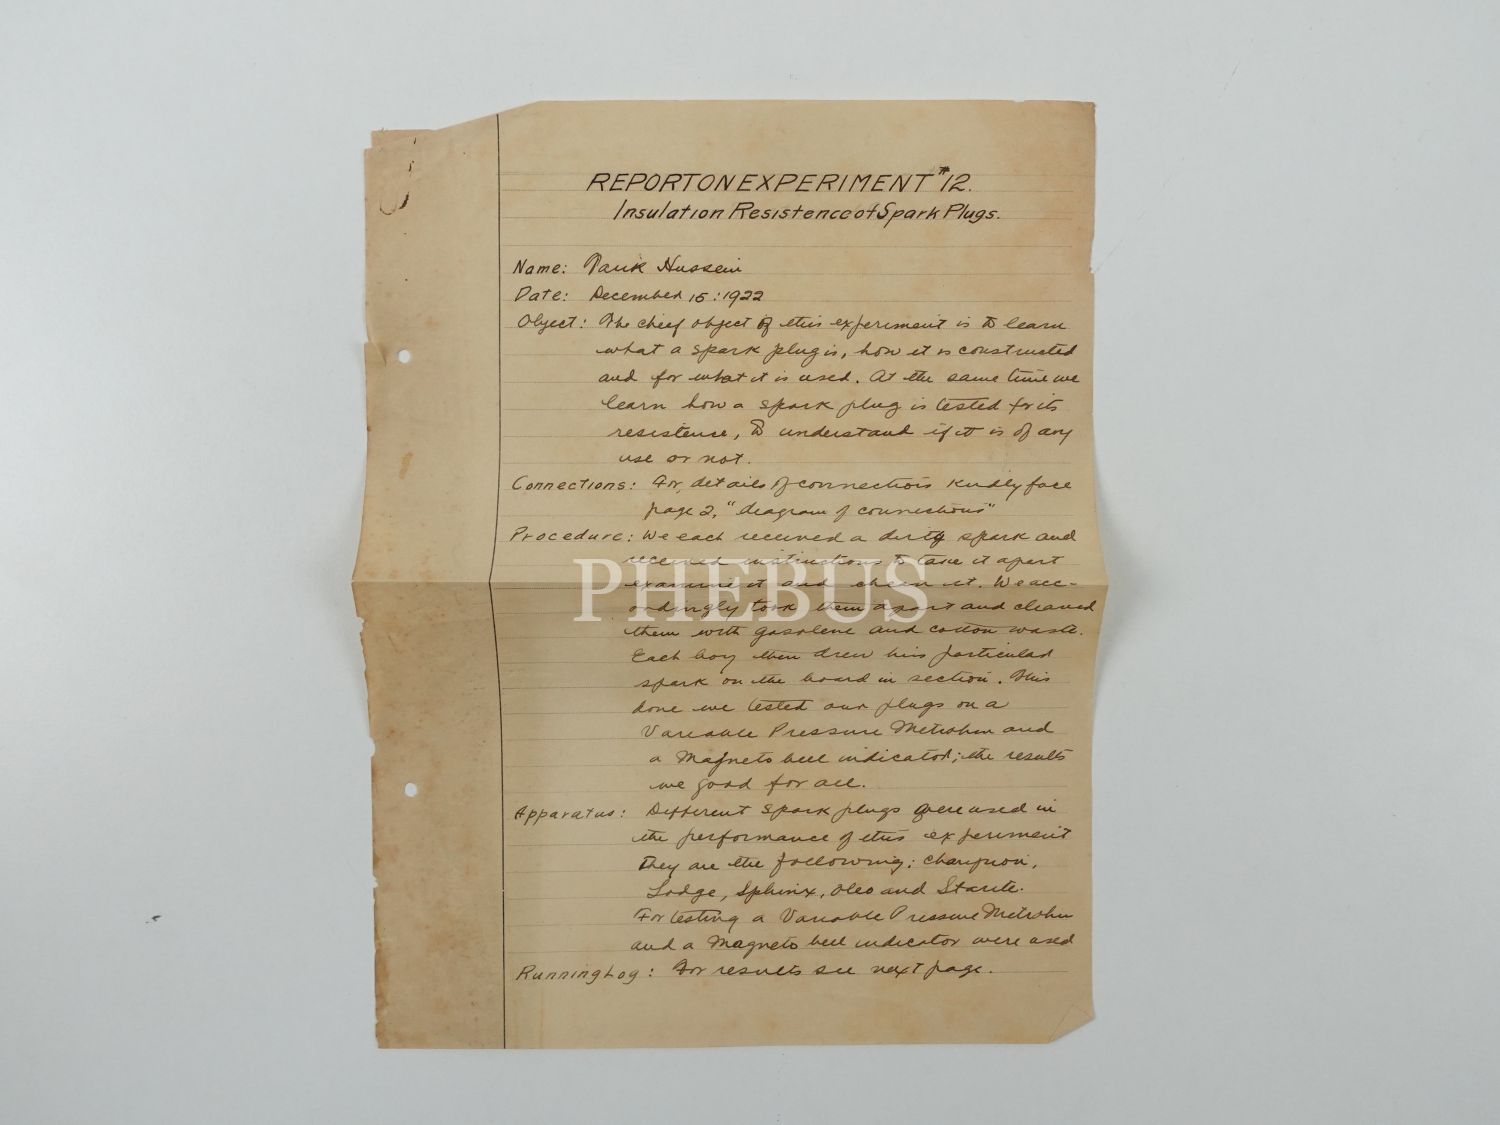 REPORT ON EXPERIMENT #12.
Insulation Resistence of Spark Plugs.
Name: Tarik Hussein
Date: December 15:1922
Object: The chief object of this experiment is to learn
what a spark plug is, how it is constructed
and for what it is used. At the same time we
learn how a spark plug is tested for its
resistence, to understand if it is of any
use or not.
Connections: For details of connections kindly face
page 2, "diagram of connections"
Procedure: We each received a dirty spark and
received instructions to take it apart
examine it and clean it. We acc-
ordingly took them apart and cleaned
them with gasolene and cotton waste.
Each boy then drew his particular
spark on the board in section. This
done we tested our plugs on a
Variable Pressure Metrohm and
a Magneto bell indicator; the results
we good for all.
Apparatus: Different spark plugs were used in
the performance of this experiment
they are the following: Champion,
Lodge, Sphinx, Oleo and
For testing a Variable Pressure Metrohm
and a Magneto bell indicator were used
Running Log: For results see next page.
PHEBUS